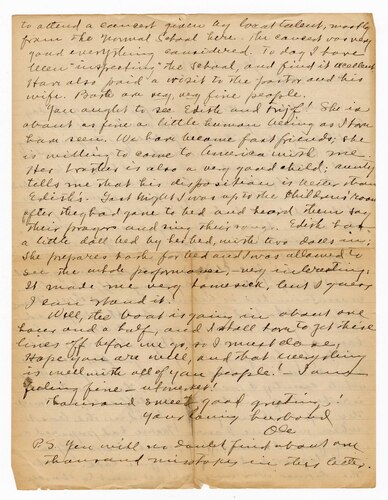 to attend a concert given by local talent, mostly
from the Normal School here. The concert was very
good everything considered. To day I have
been "inspecting" the school, and find it excellent
Have also paid a visit to the pastor and his
wife. Both are very, very fine people.
You ought to see Edith and ! She is
about as fine a little human being as I ever
have seen. We have became fast friends; she
is willing to come to America with me.
Her brother is also a very good child;
tells me that his disposition is better than
Edith's. Last night I was up to the children's room
after they had gone to bed and heard them say
their prayers and sing their song. Edith has
a little doll bed by her bed, with two dolls in;
She prepares both for bed and I was allowed to
see the whole performance, very interesting.
It made me very homesick, but I guess
I can stand it.
Well, the boat is going in about one
hour and a half, and I shall have to get these
lines off before we go, so I must close,
Hope you are well, and that everything
is well with all of you people! - I am
feeling fine -
Thousand sweet good greeting!
Your loving husband
Ole
P.S. You will no doubt find about one
thousand mistakes in this letter.